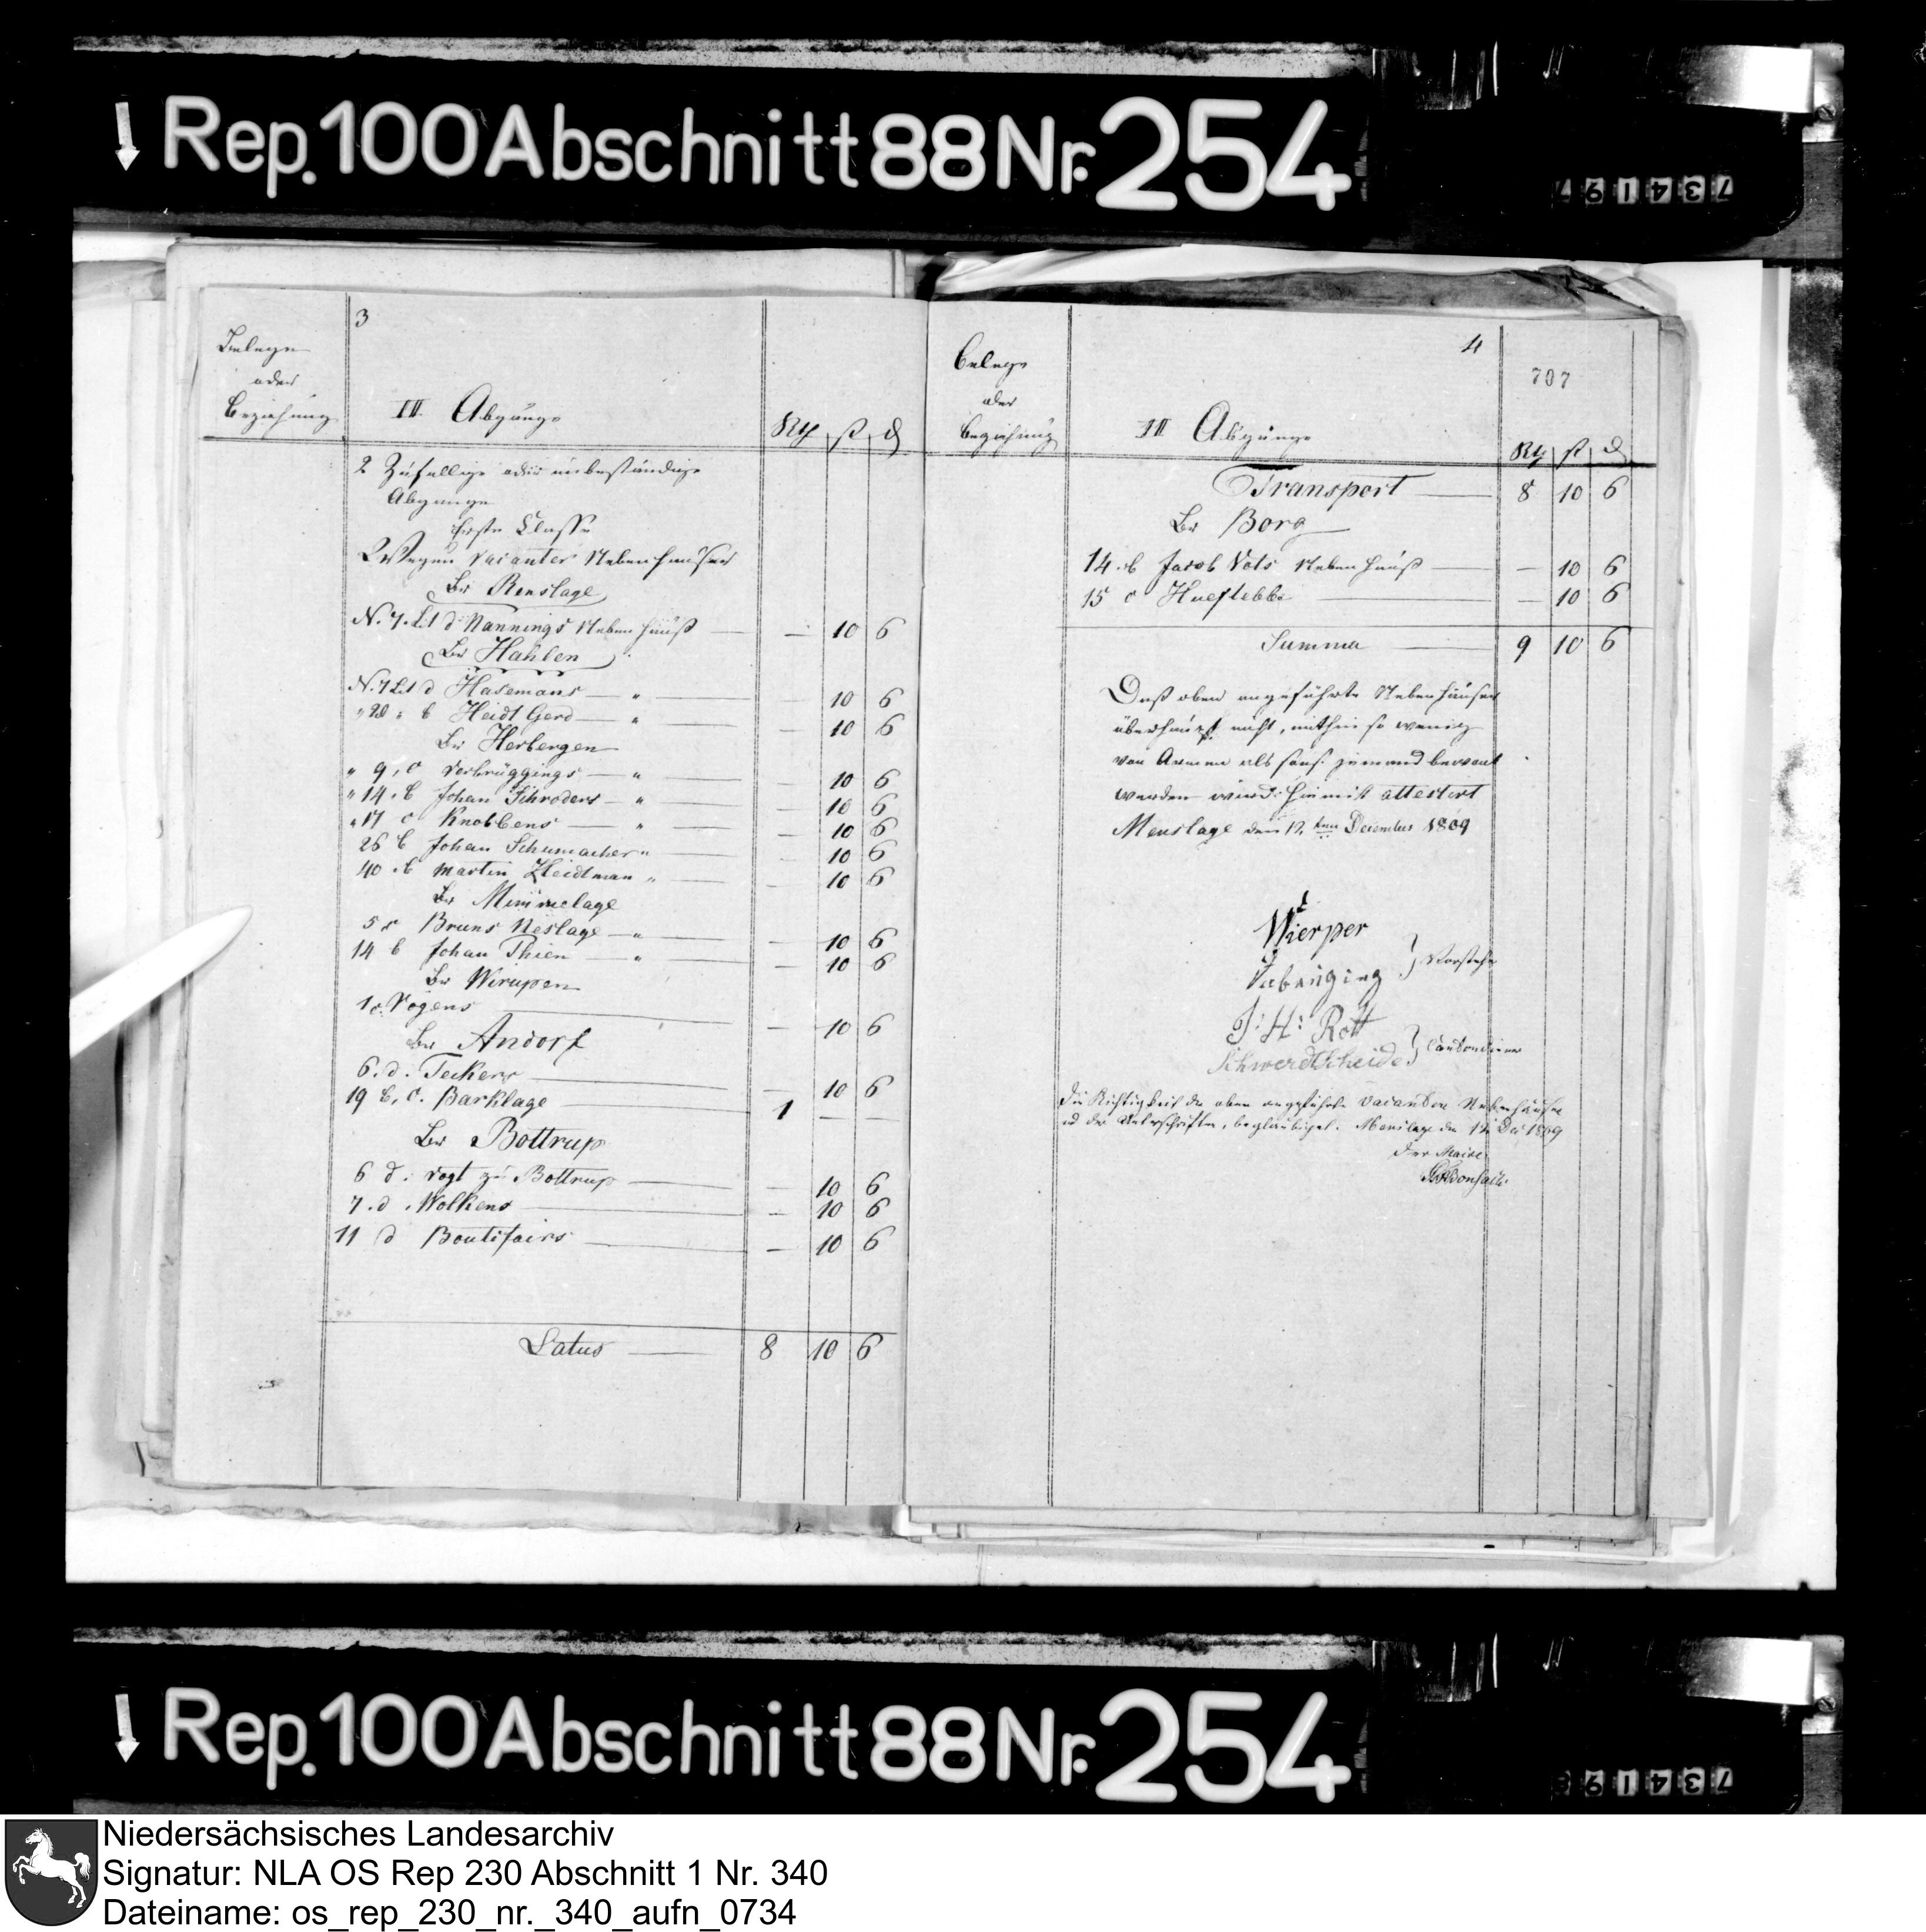 Rep. 100 Abschnitt 88 Nr. 254
734197
3
Belege
oder
Beziehung
III. Abgänge
Rthl ß d
2 Zufällige oder unbeständige
Abgänge
Erste Classe
Wegen vacanter Nebenhäuser
Br Renslage
N. 7. Lit d Nannings Nebenhauß — 10 6
Br Hahlen
N. 7 Lit d Hasemans — " — 10 6
" 20 " b Heidt Gerd — " — 10 6
Br Herbergen
" 9, c Verbrüggings — " — 10 6
" 14. b Johan Schroders — " — 10 6
" 17 c Knobbens — " — 10 6
26 b Johan Schumacher " — 10 6
40. b Martin Heidtman " — 10 6
Br Mimmelage
5 c Bruns Neslage — " — 10 6
14 b Johan Thien — " — 10 6
Br Wierupen
1 c. Vogens — 10 6
Br Andorf
6. d. Teckers — 10 6
19 b, c. Barklage — 1 — —
Br Bottrup
6 d. Vogt zu Bottrup — 10 6
7. d. Wolkens — 10 6
11 d Boutifairs — 10 6
Latus — 8 10 6
Belege
oder
Beziehung
4
707
III Abgänge
Rthl ß d
Transport — 8 10 6
Br Borg
14. b Jacob Vots Nebenhauß — 10 6
15 c Hueftebbe — 10 6
Summa — 9 10 6
Daß oben angeführte Nebenhäuser
überhaupt nicht, mithin so wenig
von Armen als sonst jemand bewont
werden wird hiemit attestirt
Menslage den 12ten December 1809
Wierper
Vorsteher
J: H: Rott
Schwerdtscheide
Die Richtigkeit der oben angeführten vacanten Nebenhäuser
u der Unterschriften, beglaubiget. Menslage den 12 Dec 1809
Der Maire
Rep. 100 Abschnitt 88 Nr. 254
Niedersächsisches Landesarchiv
Signatur: NLA OS Rep 230 Abschnitt 1 Nr. 340
Dateiname: os_rep_230_nr._340_aufn_0734